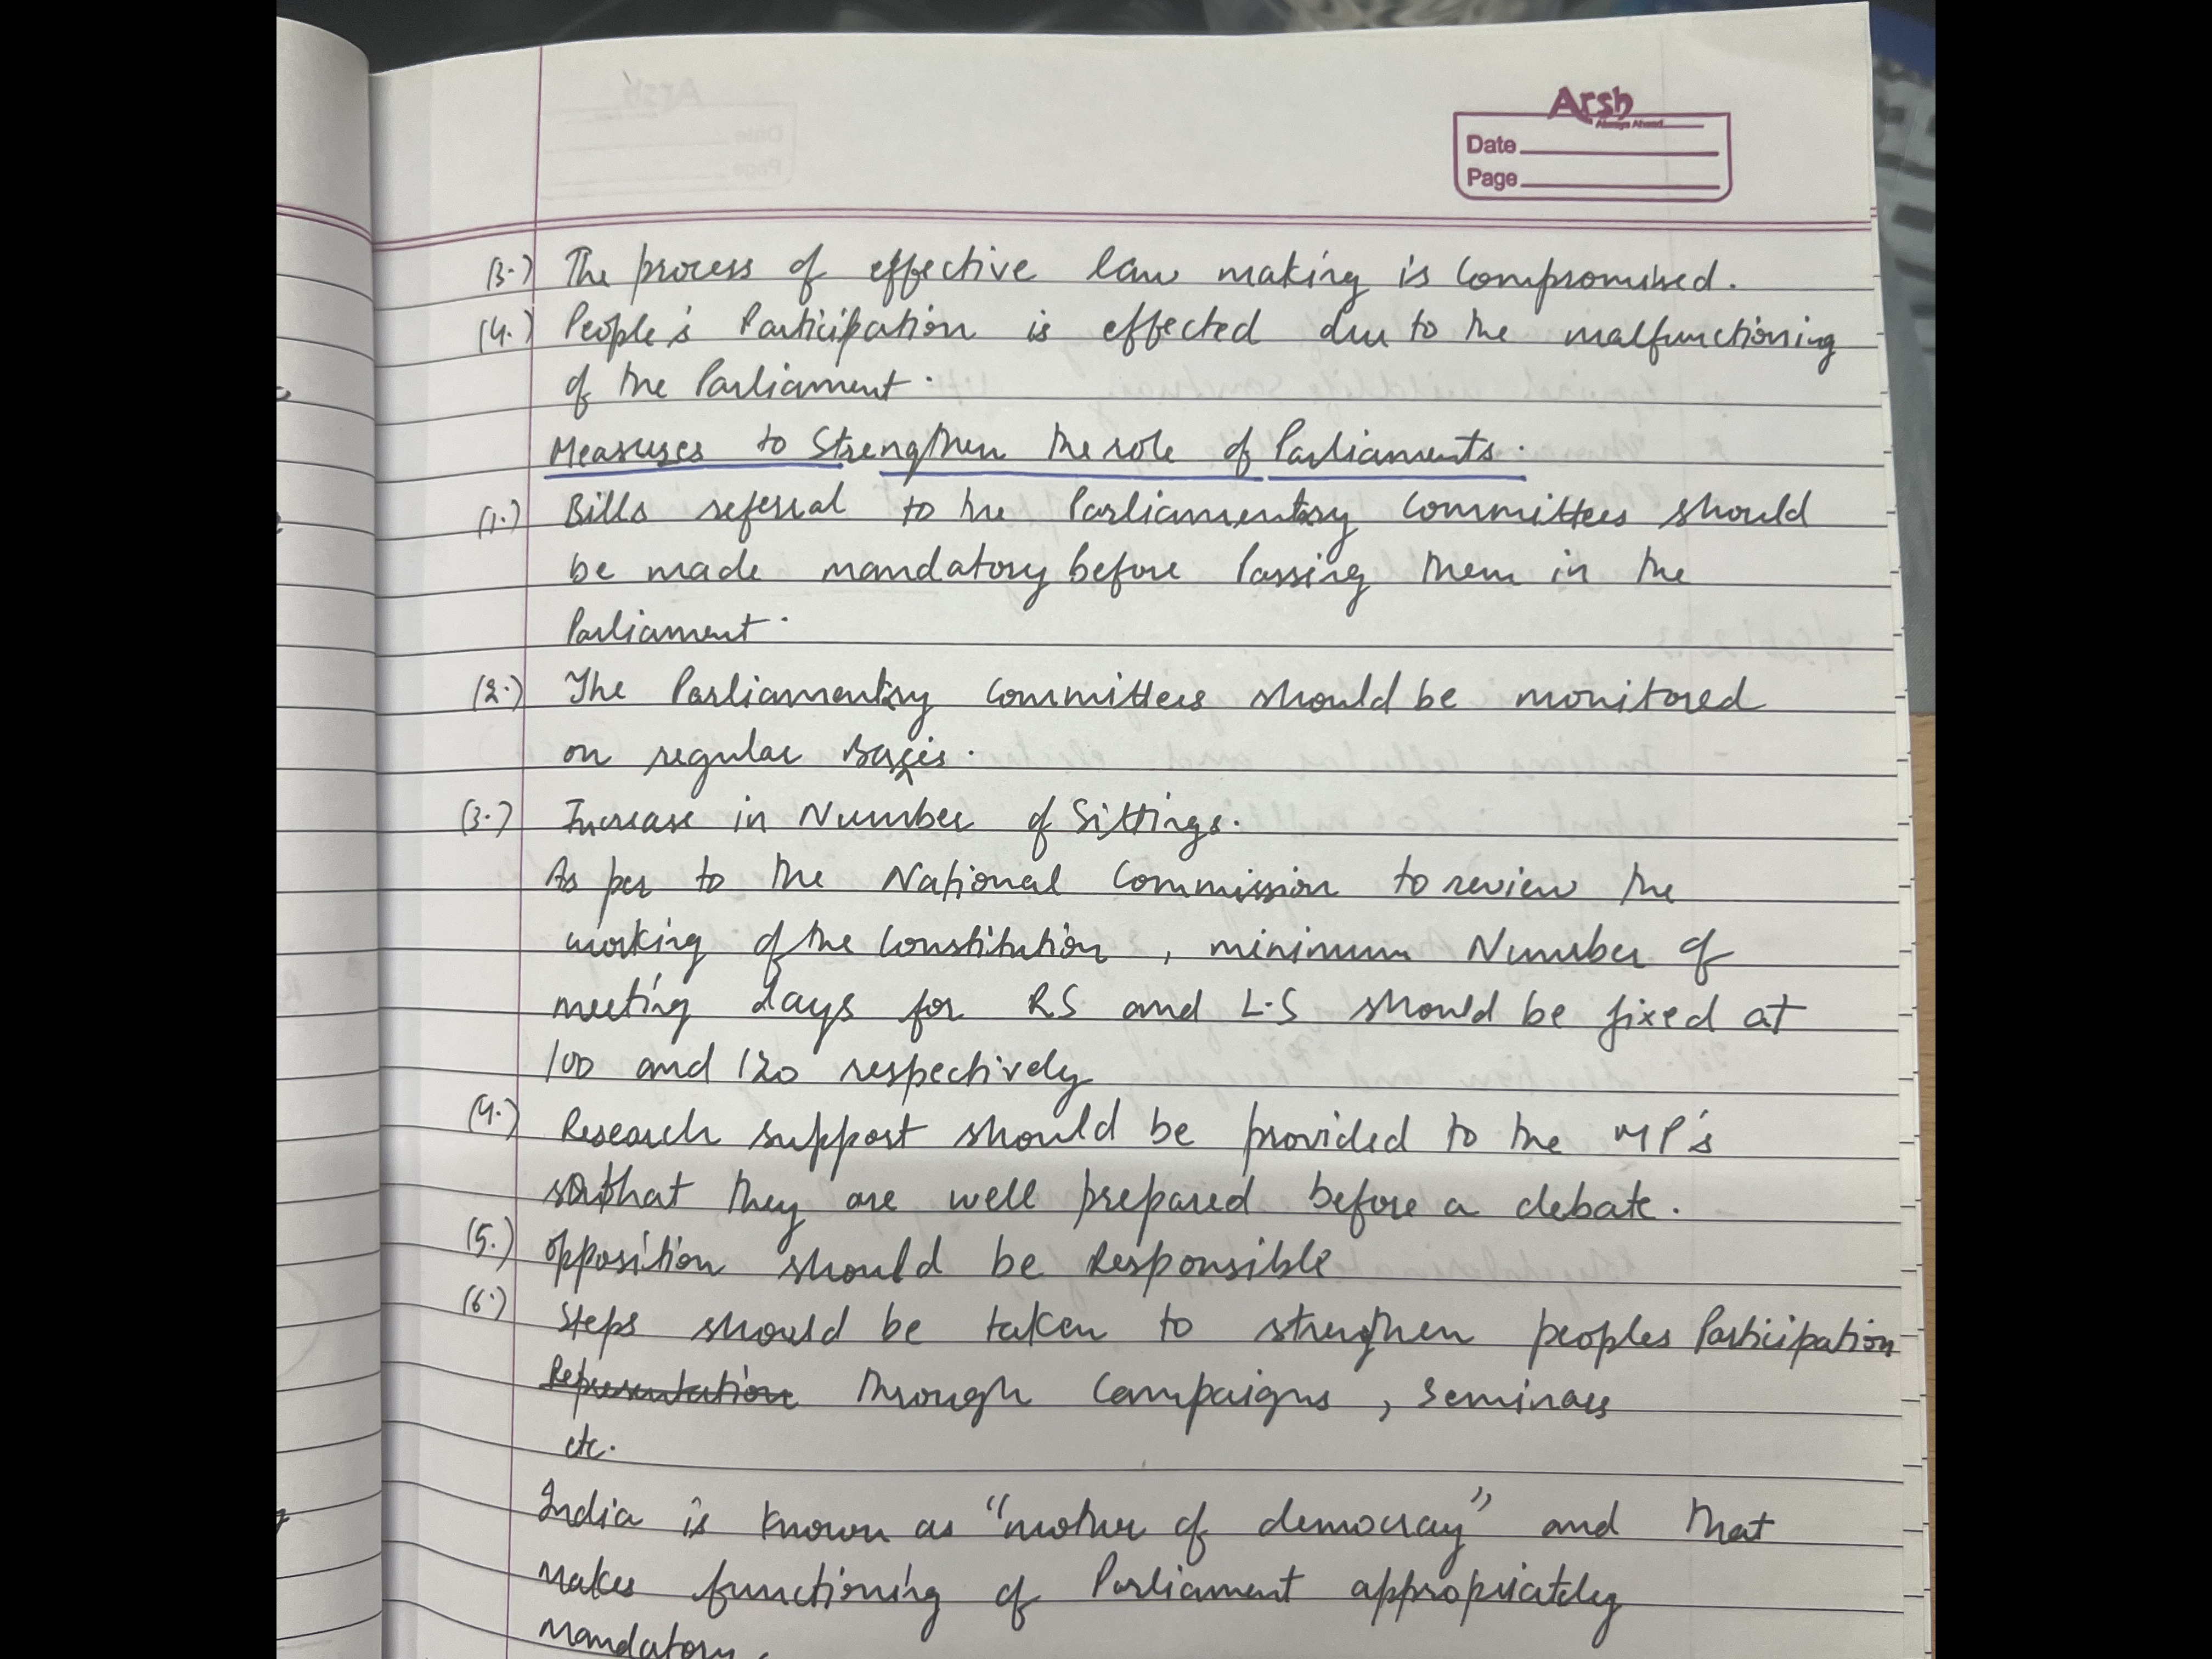 Arsh
Always Ahead
Date
Page
(3.) The process of effective law making is compromised.
(4.) People's Participation is effected due to the malfunctioning
of the Parliament.
Measures to Strengthen the role of Parliaments.
(1.) Bills referral to the Parliamentary Committees should
be made mandatory before Passing them in the
Parliament.
(2.) The Parliamentary Committees should be monitored
on regular Basis.
(3.) Increase in Number of Sittings.
As per to the National Commission to review the
working of the Constitution, minimum Number of
meeting days for RS and L.S should be fixed at
100 and 120 respectively
(4.) Research support should be provided to the MP's
so that they are well prepared before a debate.
(5.) opposition should be Responsible
(6.) Steps should be taken to strengthen peoples Participation
Representation through Campaigns, Seminars
etc.
India is known as "mother of democracy" and that
makes functioning of Parliament appropriately
mandatory.